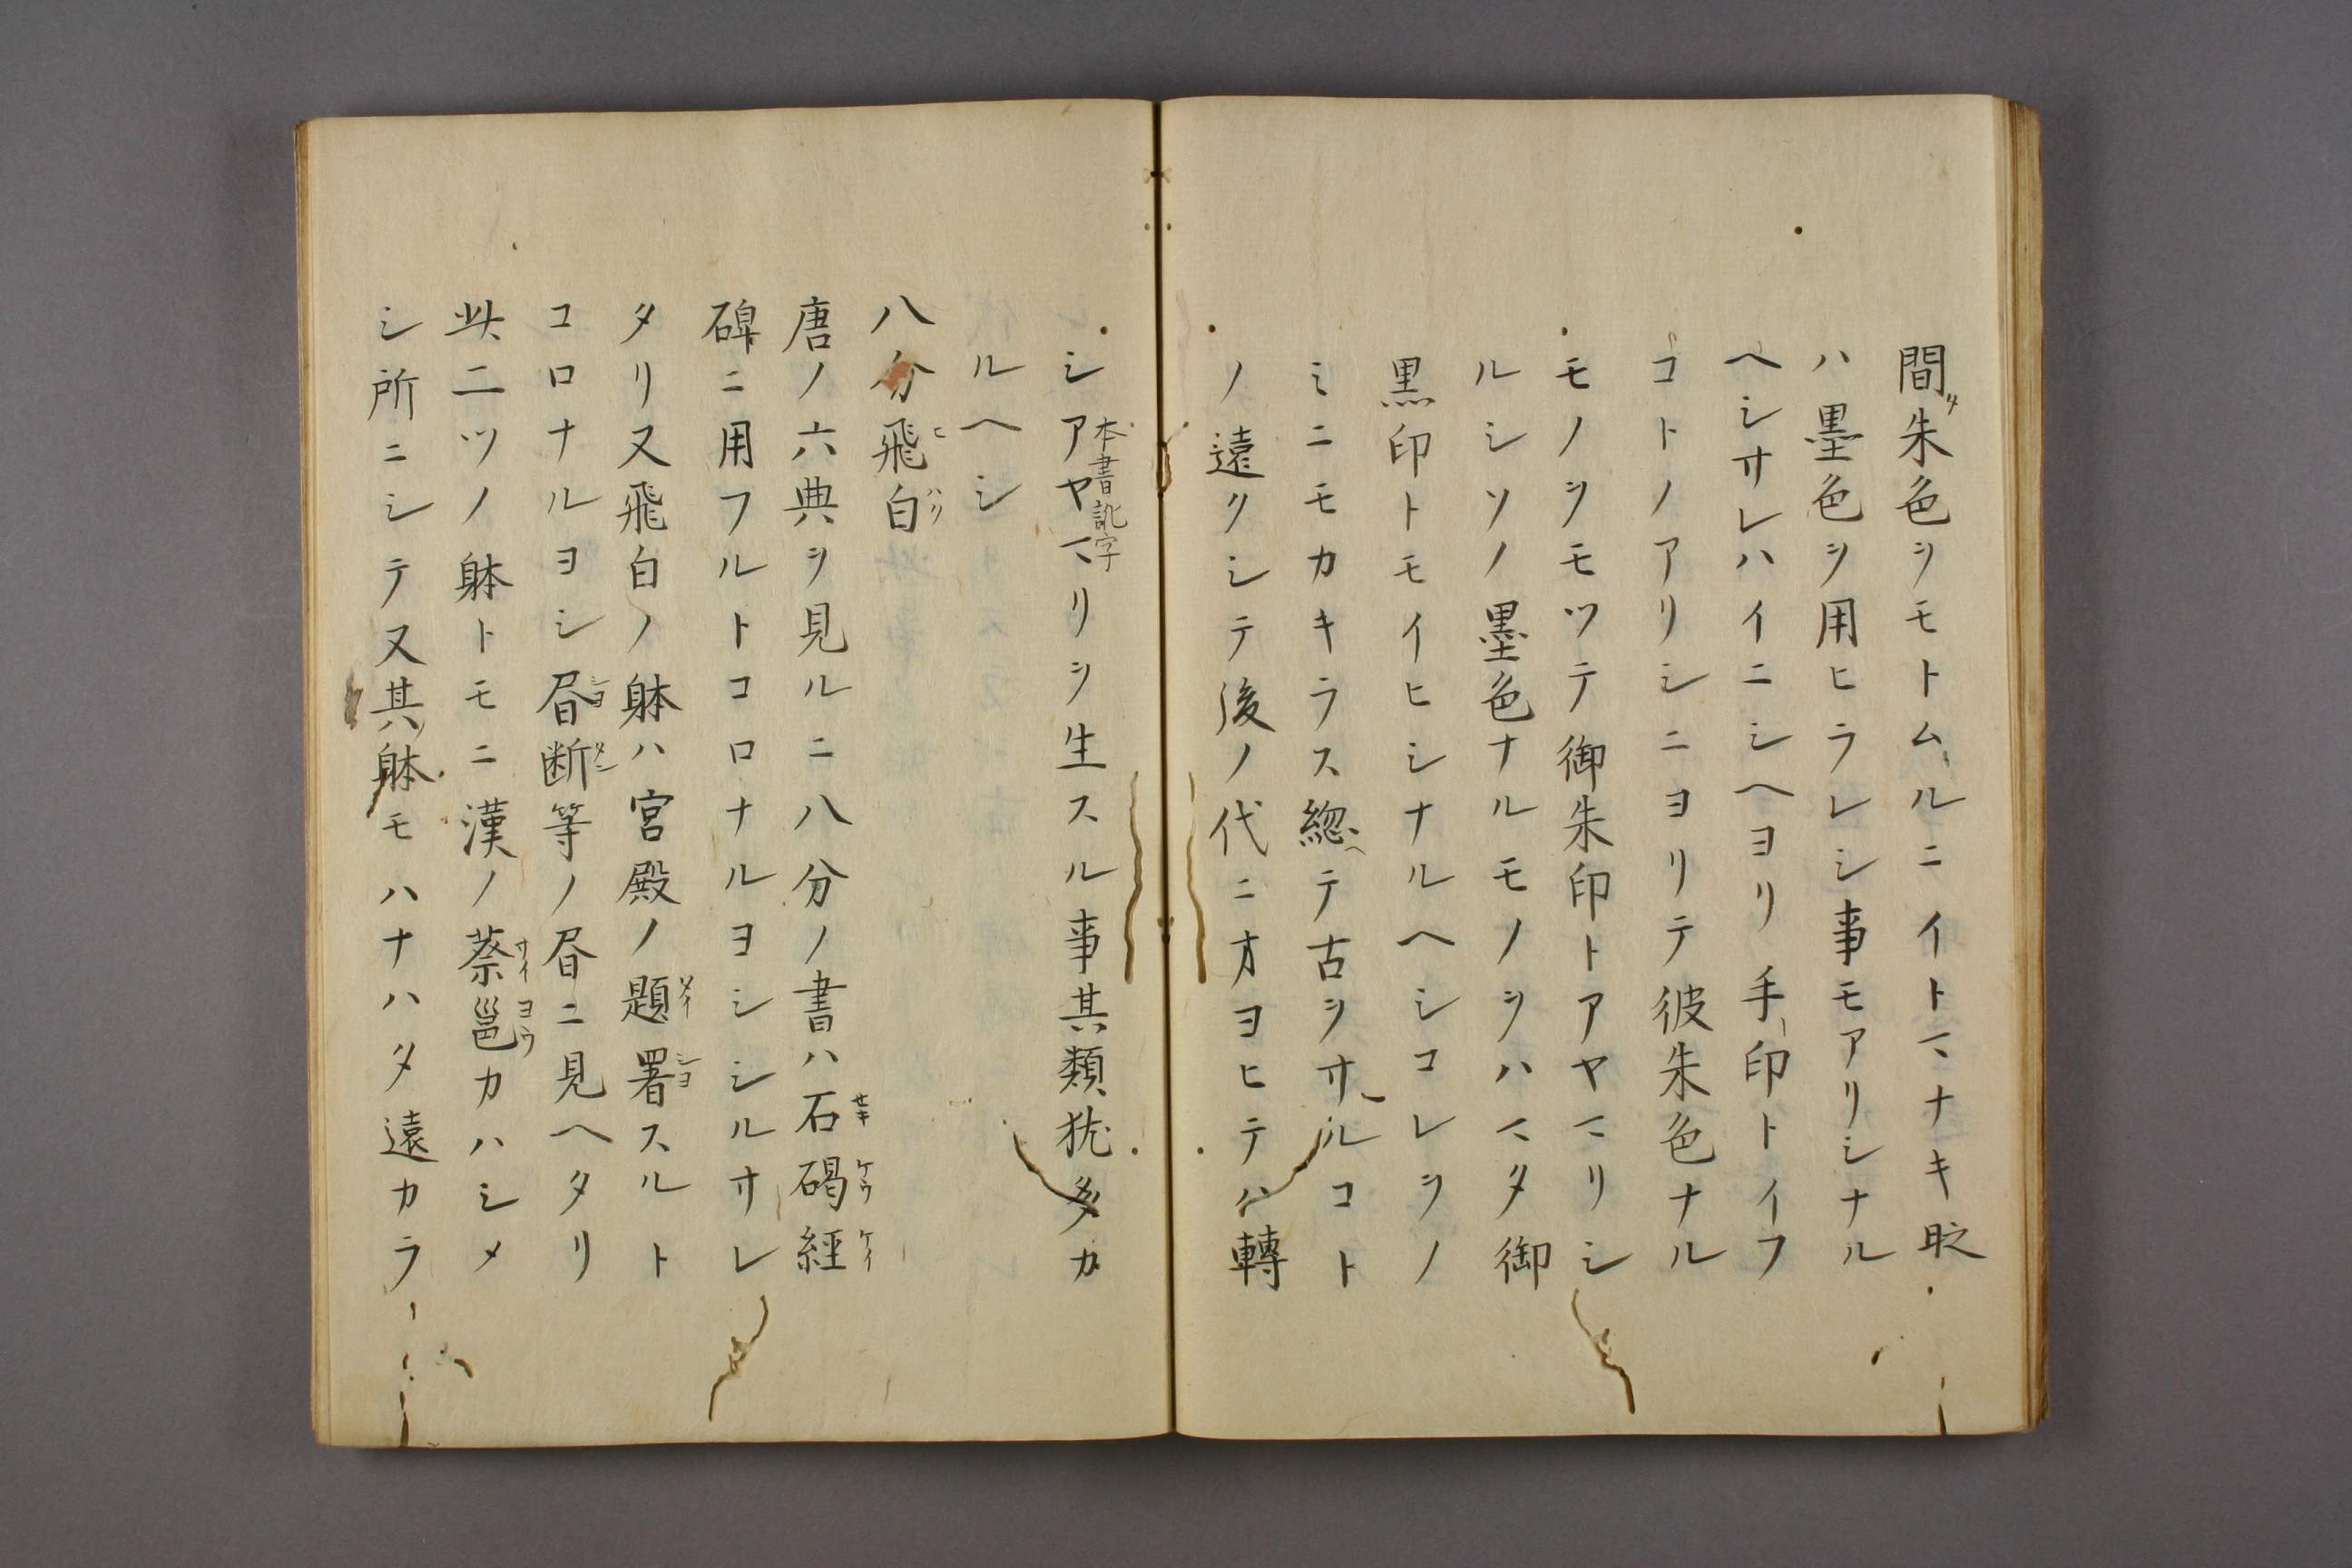 間タ朱色ヲモトムルニイトマナキ時
ハ墨色ヲ用ヒラレシ事モアリシナル
ヘシサレハイニシヘヨリ手印トイフ
コトノアリシニヨリテ彼朱色ナル
モノヲモツテ御朱印トアヤマリシ
ルシソノ墨色ナルモノヲハマタ御
黒印トモイヒシナルヘシコレヲノ
ミニモカキラス総ヘテ古ヲサルコト
ノ遠クシテ後ノ代ニ及ヨヒテハ轉
シアヤマリヲ生スル事其類犹多カ
本書訛字
ルヘシ
八分飛白
ヒハク
唐ノ六典ヲ見ルニ八分ノ書ハ石碣經
セキケウケイ
碑ニ用フルトコロナルヨシシルサレ
タリ又飛白ノ躰ハ宮殿ノ題署スルト
タイシヨ
コロナルヨシ昏断等ノ昏ニ見ヘタリ
シヨタン
此二ツノ躰トモニ漢ノ蔡邕カハシメ
サイヨウ
シ所ニシテ又其躰モハナハタ遠カラ